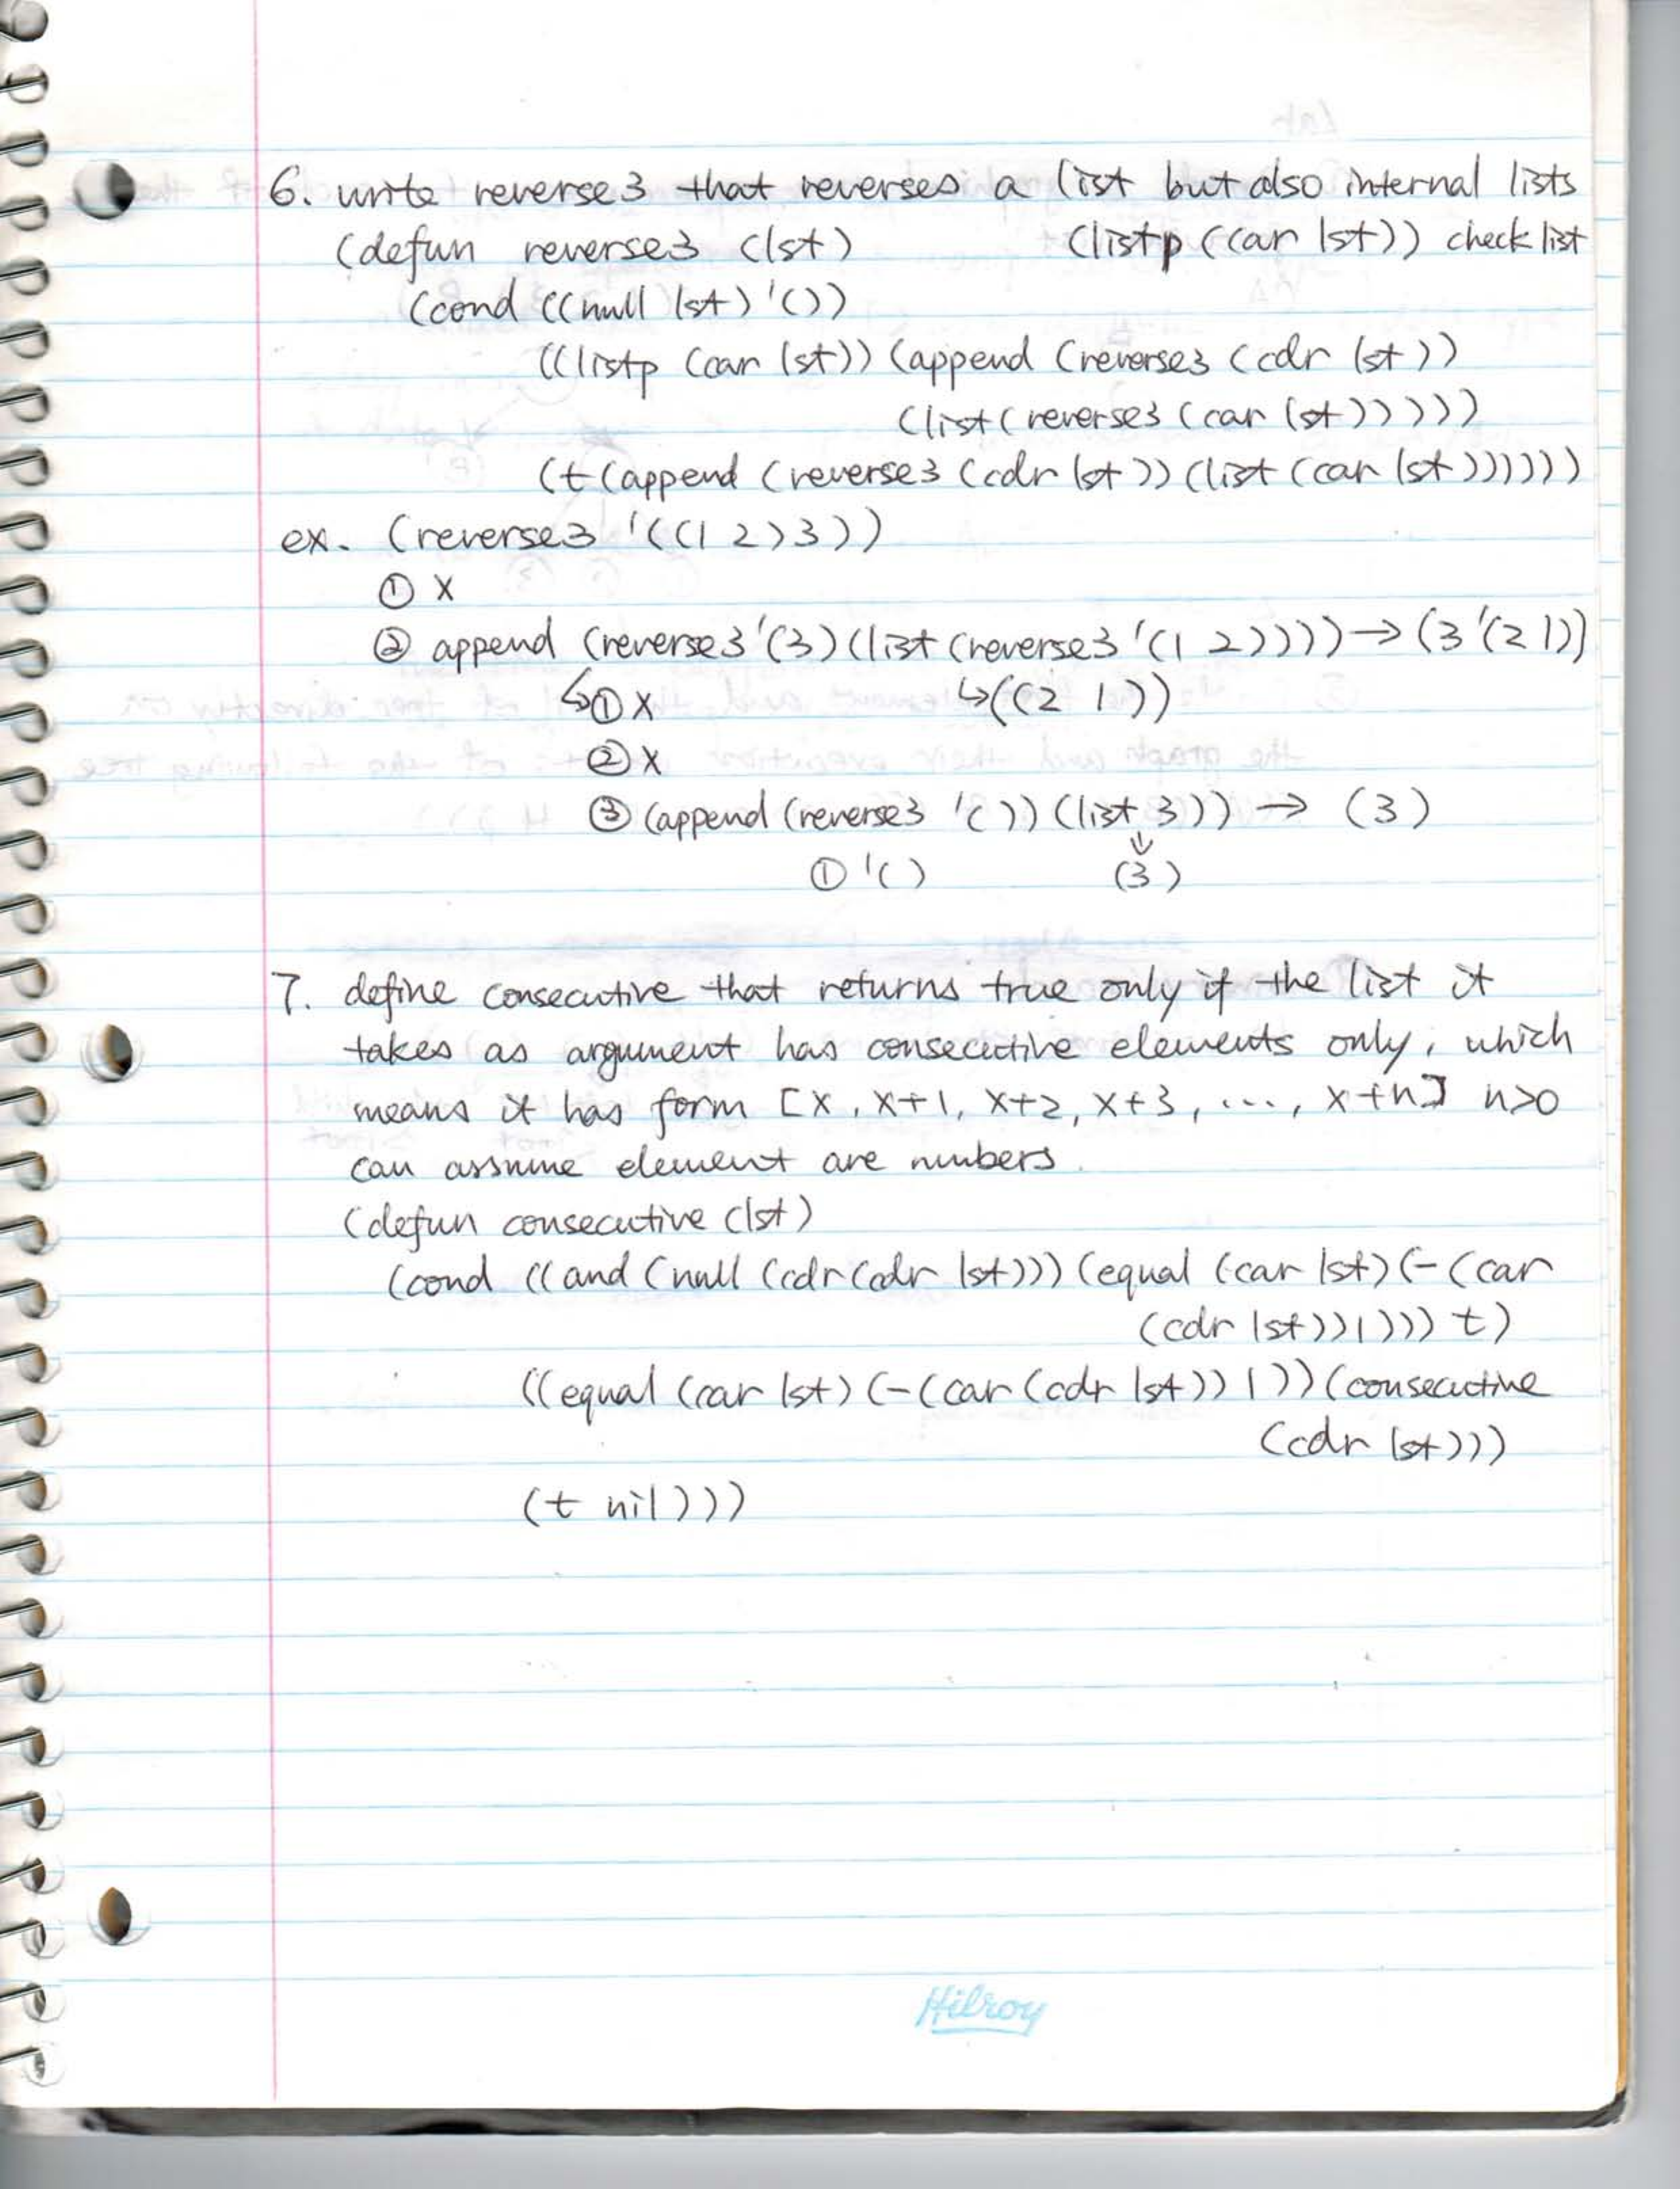 6. write reverse3 that reverses a list but also internal lists
(defun reverse3 (lst) (listp ((car lst)) check list
(cond ((null lst) '())
((listp (car lst)) (append (reverse3 (cdr lst))
(list (reverse3 (car lst)))))
(t (append (reverse3 (cdr lst)) (list (car lst))))))
ex. (reverse3 '((1 2) 3))
① x
② append (reverse3 '(3) (list (reverse3 '(1 2)))) → (3 '(2 1))
↳ ① x ↳ ((2 1))
② x
③ (append (reverse3 '()) (list 3)) → (3)
① '() (3)
7. define consecutive that returns true only if the list it
takes as argument has consecutive elements only, which
means it has form [x, x+1, x+2, x+3, ..., x+n] n>0
can assume element are numbers.
(defun consecutive (lst)
(cond ((and (null (cdr (cdr lst))) (equal (car lst) (- (car
(cdr lst)) 1))) t)
((equal (car lst) (- (car (cdr lst)) 1)) (consecutive
(cdr lst)))
(t nil)))
Hilroy